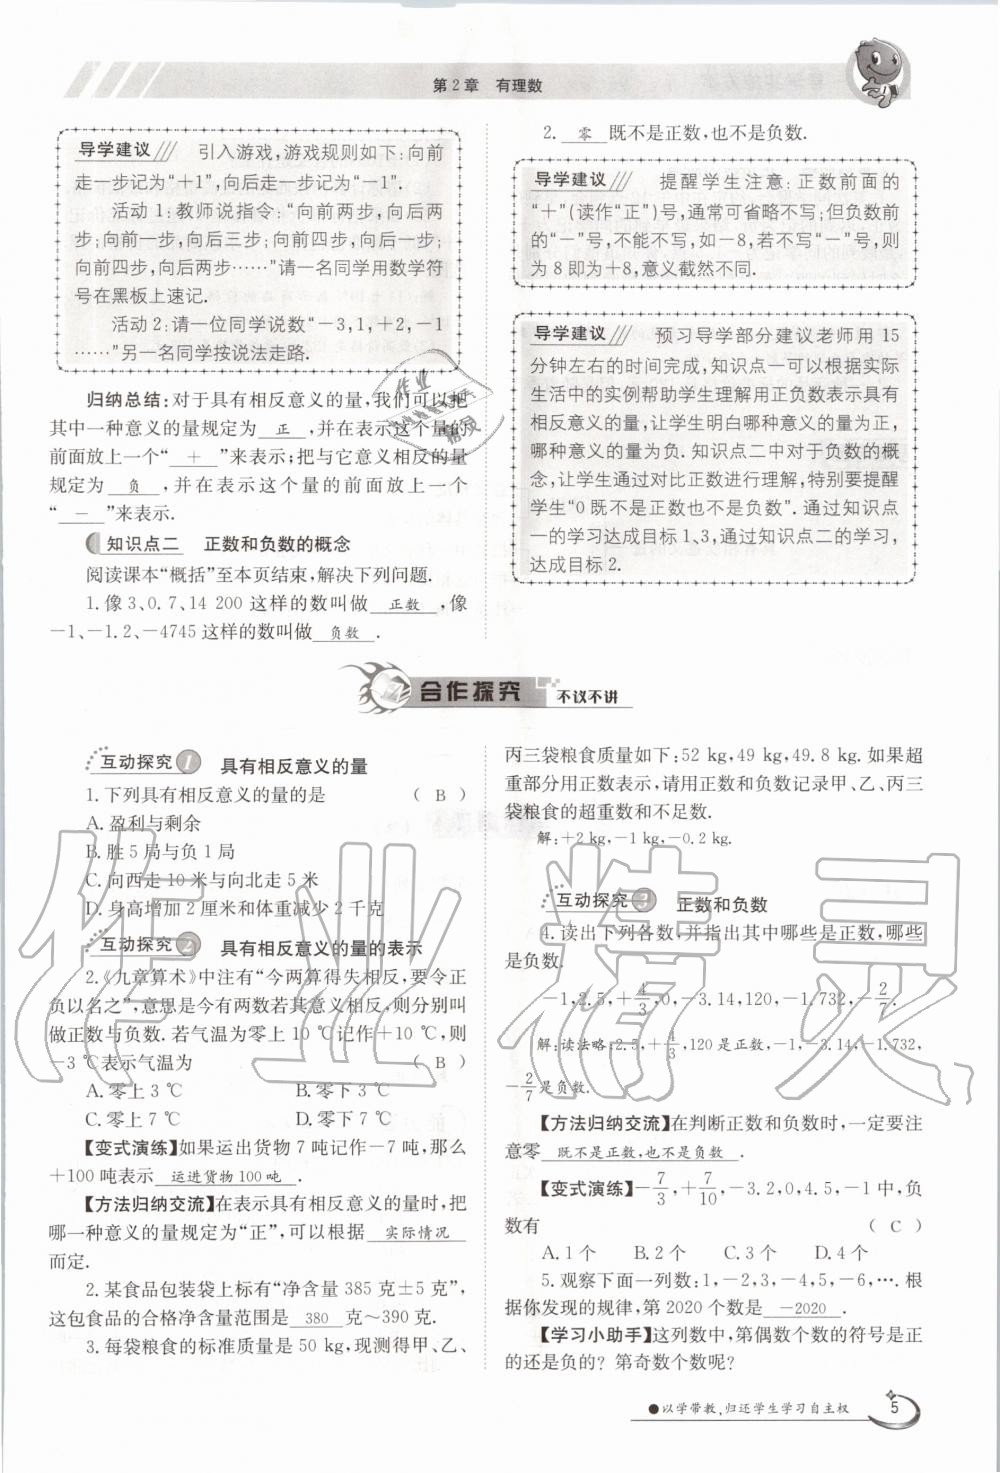 第2章 有理数
导学建议 引入游戏,游戏规则如下:向前
走一步记为“+1”,向后走一步记为“-1”.
活动 1:教师说指令:“向前两步,向后两
步;向前一步,向后三步;向前四步,向后一步;
向前四步,向后两步……”请一名同学用数学符
号在黑板上速记.
活动 2:请一位同学说数“-3,1,+2,-1
……”另一名同学按说法走路.
归纳总结:对于具有相反意义的量,我们可以把
其中一种意义的量规定为 正 ,并在表示这个量的
前面放上一个“ + ”来表示;把与它意义相反的量
规定为 负 ,并在表示这个量的前面放上一个
“ - ”来表示.
知识点二 正数和负数的概念
阅读课本“概括”至本页结束,解决下列问题.
1.像 3、0.7、14 200 这样的数叫做 正数 ,像
-1、-1.2、-4745 这样的数叫做 负数 .
2. 零 既不是正数,也不是负数.
导学建议 提醒学生注意:正数前面的
“+”(读作“正”)号,通常可省略不写;但负数前
的“-”号,不能不写,如-8,若不写“-”号,则
为 8 即为+8,意义截然不同.
导学建议 预习导学部分建议老师用 15
分钟左右的时间完成,知识点一可以根据实际
生活中的实例帮助学生理解用正负数表示具有
相反意义的量,让学生明白哪种意义的量为正,
哪种意义的量为负. 知识点二中对于负数的概
念,让学生通过对比正数进行理解,特别要提醒
学生“0 既不是正数也不是负数”. 通过知识点
一的学习达成目标 1、3,通过知识点二的学习,
达成目标 2.
合作探究 不议不讲
互动探究 1 具有相反意义的量
1.下列具有相反意义的量的是 ( B )
A. 盈利与剩余
B. 胜 5 局与负 1 局
C. 向西走 10 米与向北走 5 米
D. 身高增加 2 厘米和体重减少 2 千克
互动探究 2 具有相反意义的量的表示
2.《九章算术》中注有“今两算得失相反,要令正
负以名之”,意思是今有两数若其意义相反,则分别叫
做正数与负数. 若气温为零上 10 ℃记作+10 ℃,则
-3 ℃表示气温为 ( B )
A. 零上 3 ℃ B. 零下 3 ℃
C. 零上 7 ℃ D. 零下 7 ℃
【变式演练】如果运出货物 7 吨记作-7 吨,那么
+100 吨表示 运进货物 100 吨 .
【方法归纳交流】在表示具有相反意义的量时,把
哪一种意义的量规定为“正”,可以根据 实际情况
而定.
2. 某食品包装袋上标有“净含量 385 克±5 克”,
这包食品的合格净含量范围是 380 克~390 克.
3. 每袋粮食的标准质量是 50 kg,现测得甲、乙、
丙三袋粮食质量如下:52 kg,49 kg,49.8 kg. 如果超
重部分用正数表示,请用正数和负数记录甲、乙、丙三
袋粮食的超重数和不足数.
解:+2 kg,-1 kg,-0.2 kg.
互动探究 3 正数和负数
4. 读出下列各数,并指出其中哪些是正数,哪些
是负数.
-1,2.5,+4/3,0,-3.14,120,-1.732,-2/7.
解:读法略;2.5,+4/3,120 是正数,-1,-3.14,-1.732,
-2/7 是负数.
【方法归纳交流】在判断正数和负数时,一定要注
意零 既不是正数,也不是负数 .
【变式演练】-7/3,+7/10,-3.2,0,4.5,-1 中,负
数有 ( C )
A. 1 个 B. 2 个 C. 3 个 D. 4 个
5. 观察下面一列数:1,-2,3,-4,5,-6,…. 根
据你发现的规律,第 2020 个数是 -2020 .
【学习小助手】这列数中,第偶数个数的符号是正
的还是负的? 第奇数个数呢?
●以学带教,归还学生学习自主权 5
作业精灵